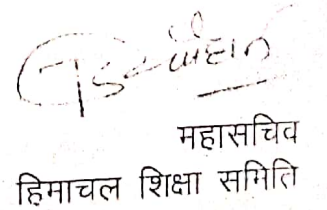 महासचिव
हिमाचल शिक्षा समिति